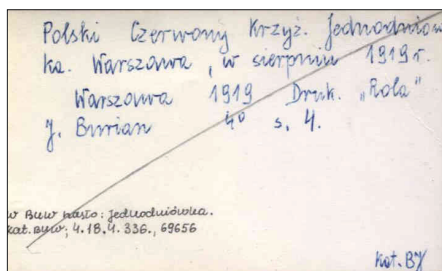 Polski Czerwony Krzyż. Jednodniów
ka. Warszawa, w sierpniu 1919 r.
Warszawa 1919 Druk. „Rola"
J. Burian 4° s. 4.
w BUW hasło: Jednodniówka.
kat. BUW; 4.18.4.336., 69656
Kat. BJ